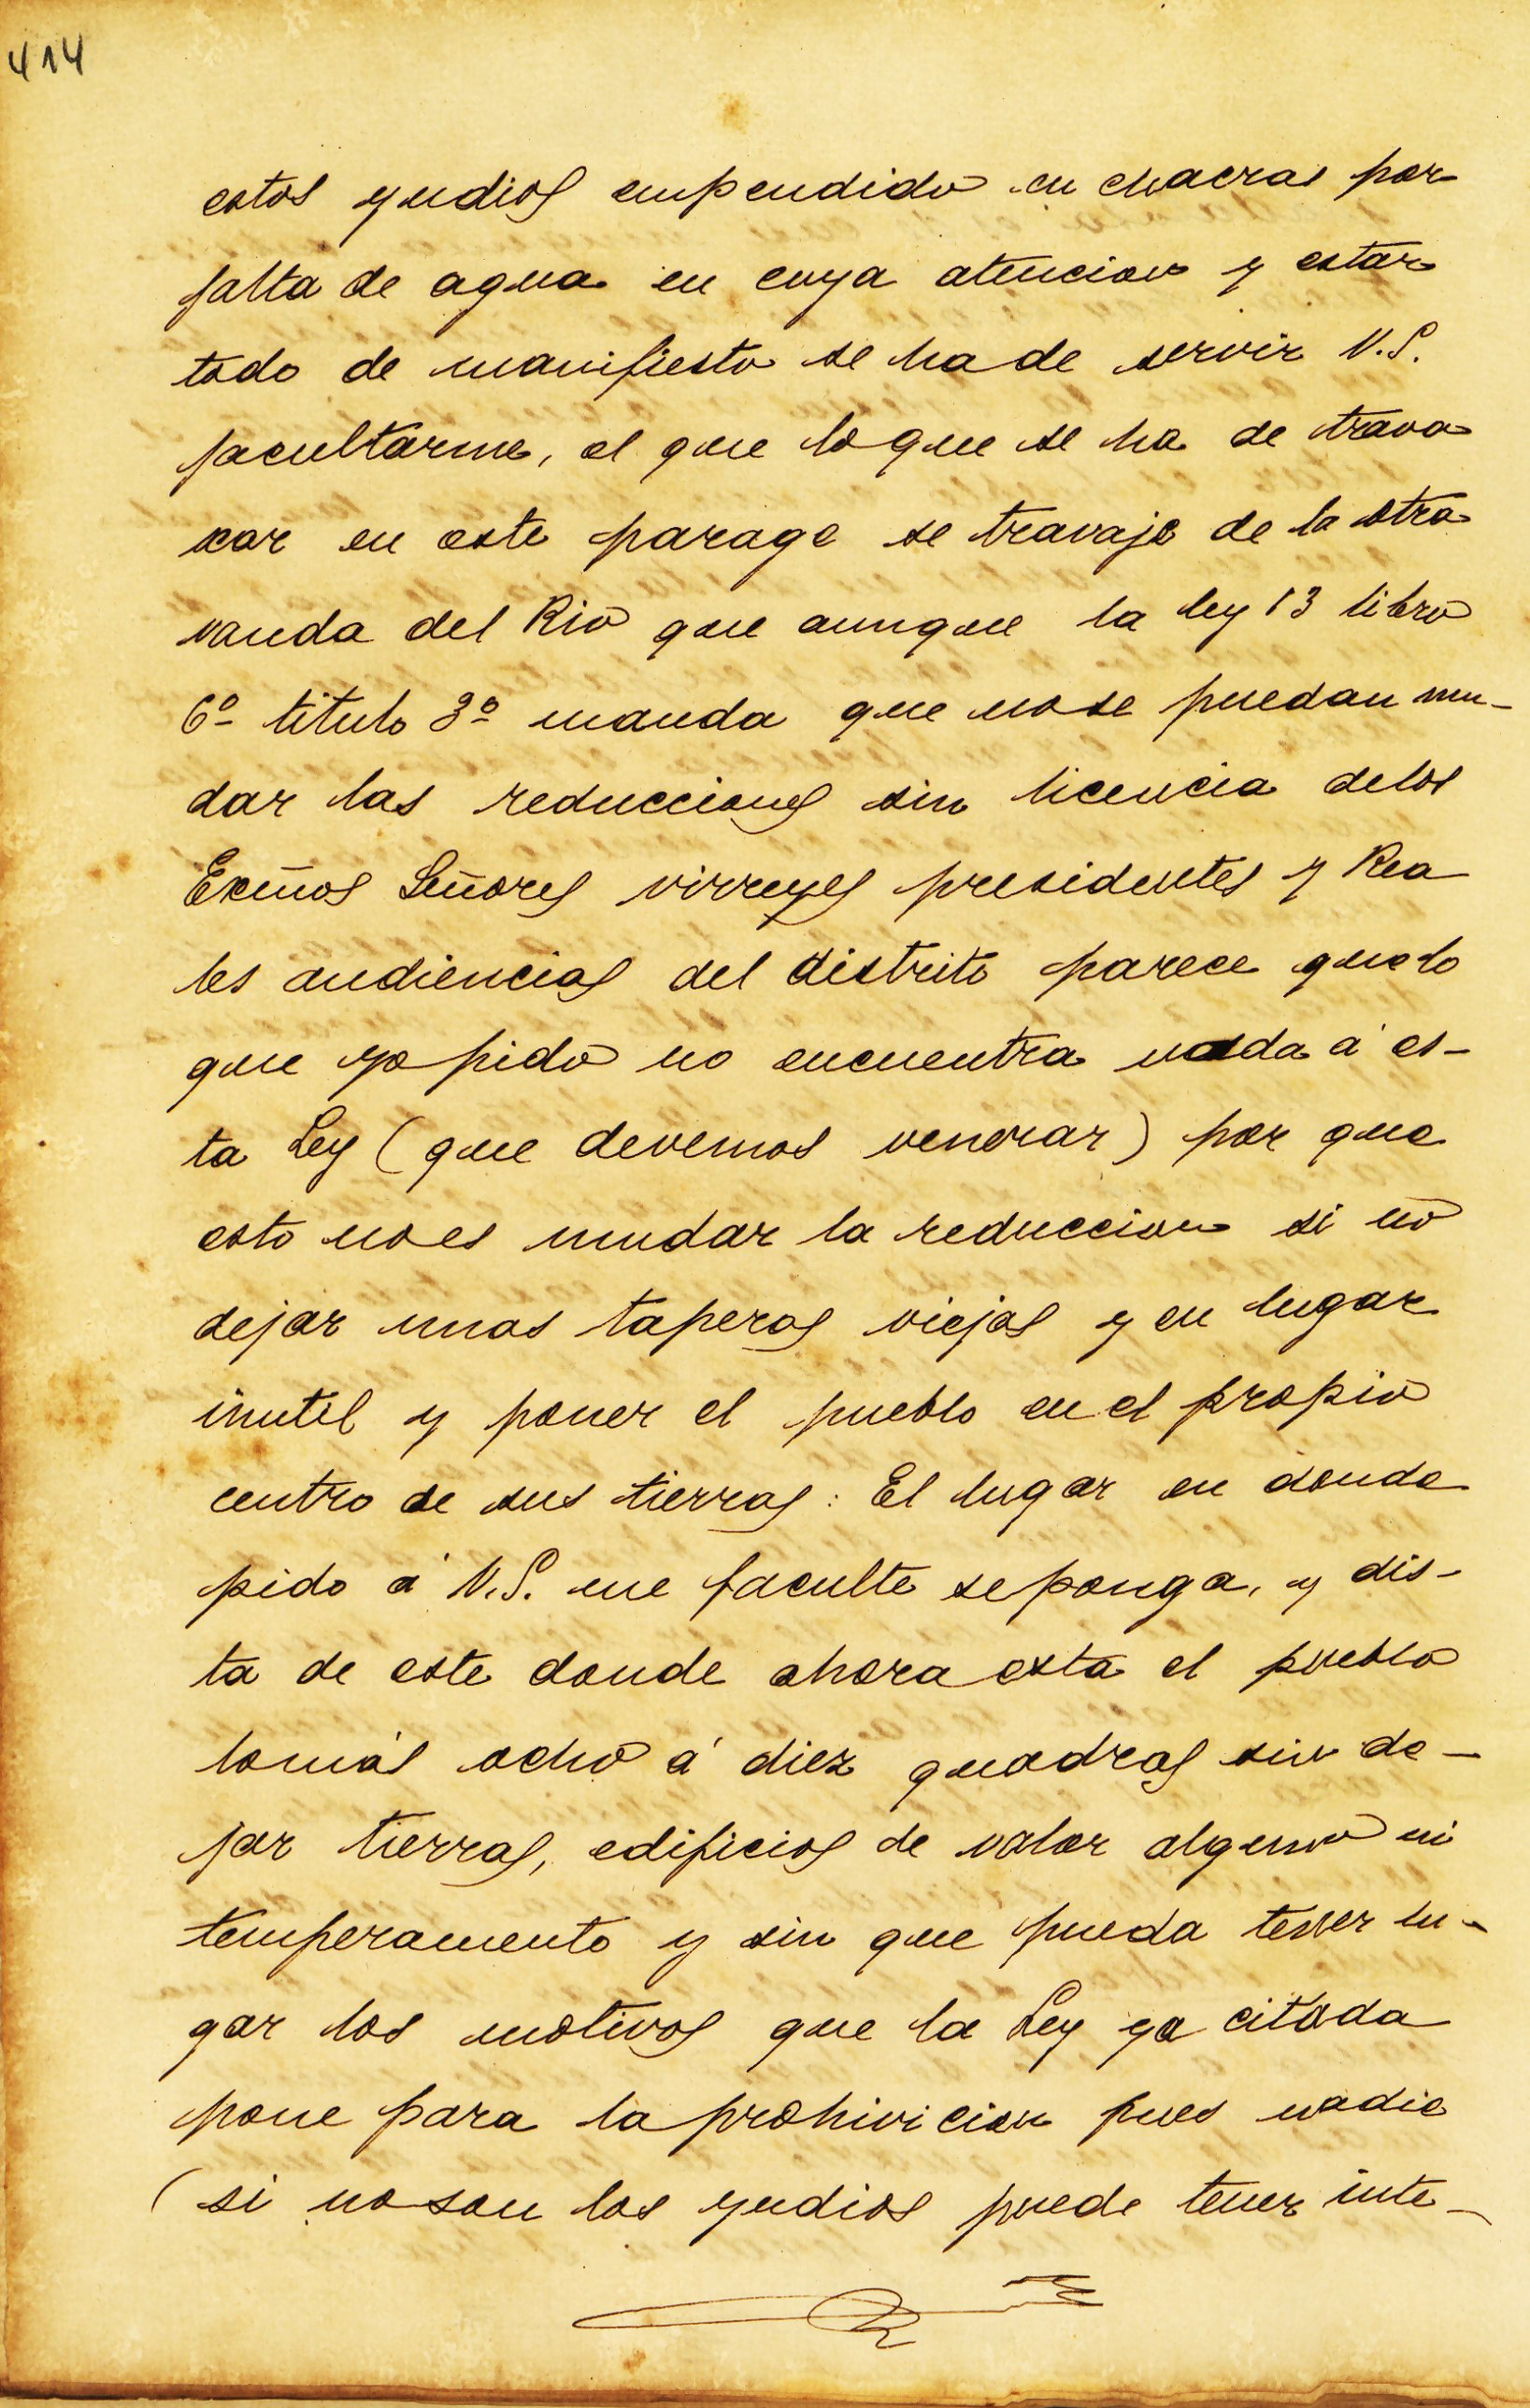 414
estos yndios empendido en chacras por
falta de agua en cuya atencion y estar
todo de manifiesto se ha de servir V.S.
facultarme, el que lo que se ha de trava
xar en este parage se travaje de la otra
vanda del Rio que aunque la ley 13 libro
6º titulo 3º manda que no se puedan mu-
dar las reducciones sin licencia delos
Exmos Señores virreyes presidentes y Rea
les audiencias del distrito parece que lo
que yo pido no encuentra nada á es-
ta Ley (que devemos venerar) por que
esto no es mudar la reduccion si no
dejar unas taperas viejas y en lugar
inutil y poner el pueblo en el propio
centro de sus tierras: El lugar en donde
pido á V.S. me faculte se ponga, y dis-
ta de este donde ahora esta el pueblo
lomás ocho á diez quadras sin de-
jar tierras, edificios de valor alguno ni
temperamento y sin que pueda tener lu-
gar los motivos que la Ley ya citada
pone para la prohivicion pues nadie
(si no son los yndios puede tener inte-